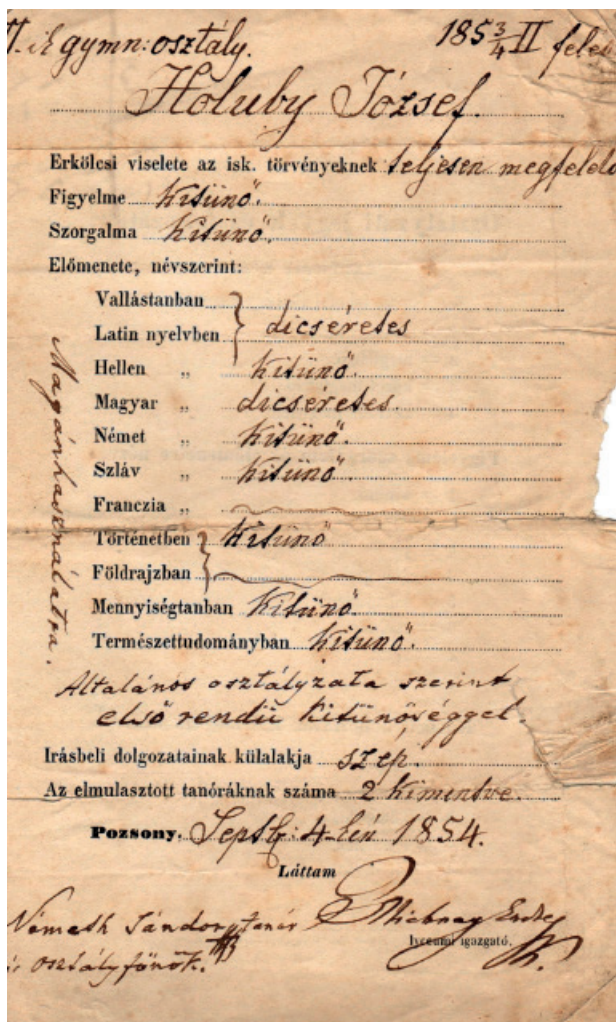 ik gymn: osztály. 185 3/4 II felev
Holuby József.
Erkölcsi viselete az isk. törvényeknek teljesen megfelelő
Figyelme Kitünő.
Szorgalma Kitünő.
Előmenete, névszerint:
Vallástanban
Latin nyelvben } dicséretes
Hellen „ Kitünő.
Magyar „ dicséretes.
Német „ Kitünő.
Szláv „ Kitünő.
Franczia „
Történetben } Kitünő
Földrajzban
Mennyiségtanban Kitünő.
Természettudományban Kitünő.
Magánhasználatra.
Általános osztályzata szerint
első rendü kitünőséggel.
Irásbeli dolgozatainak külalakja szép.
Az elmulasztott tanóráknak száma 2 kimentve.
Pozsony. Septb: 4-kén 1854.
Láttam
Németh Sándor tanár Michnay Endre
lyceumi igazgató.
osztályfőnök.